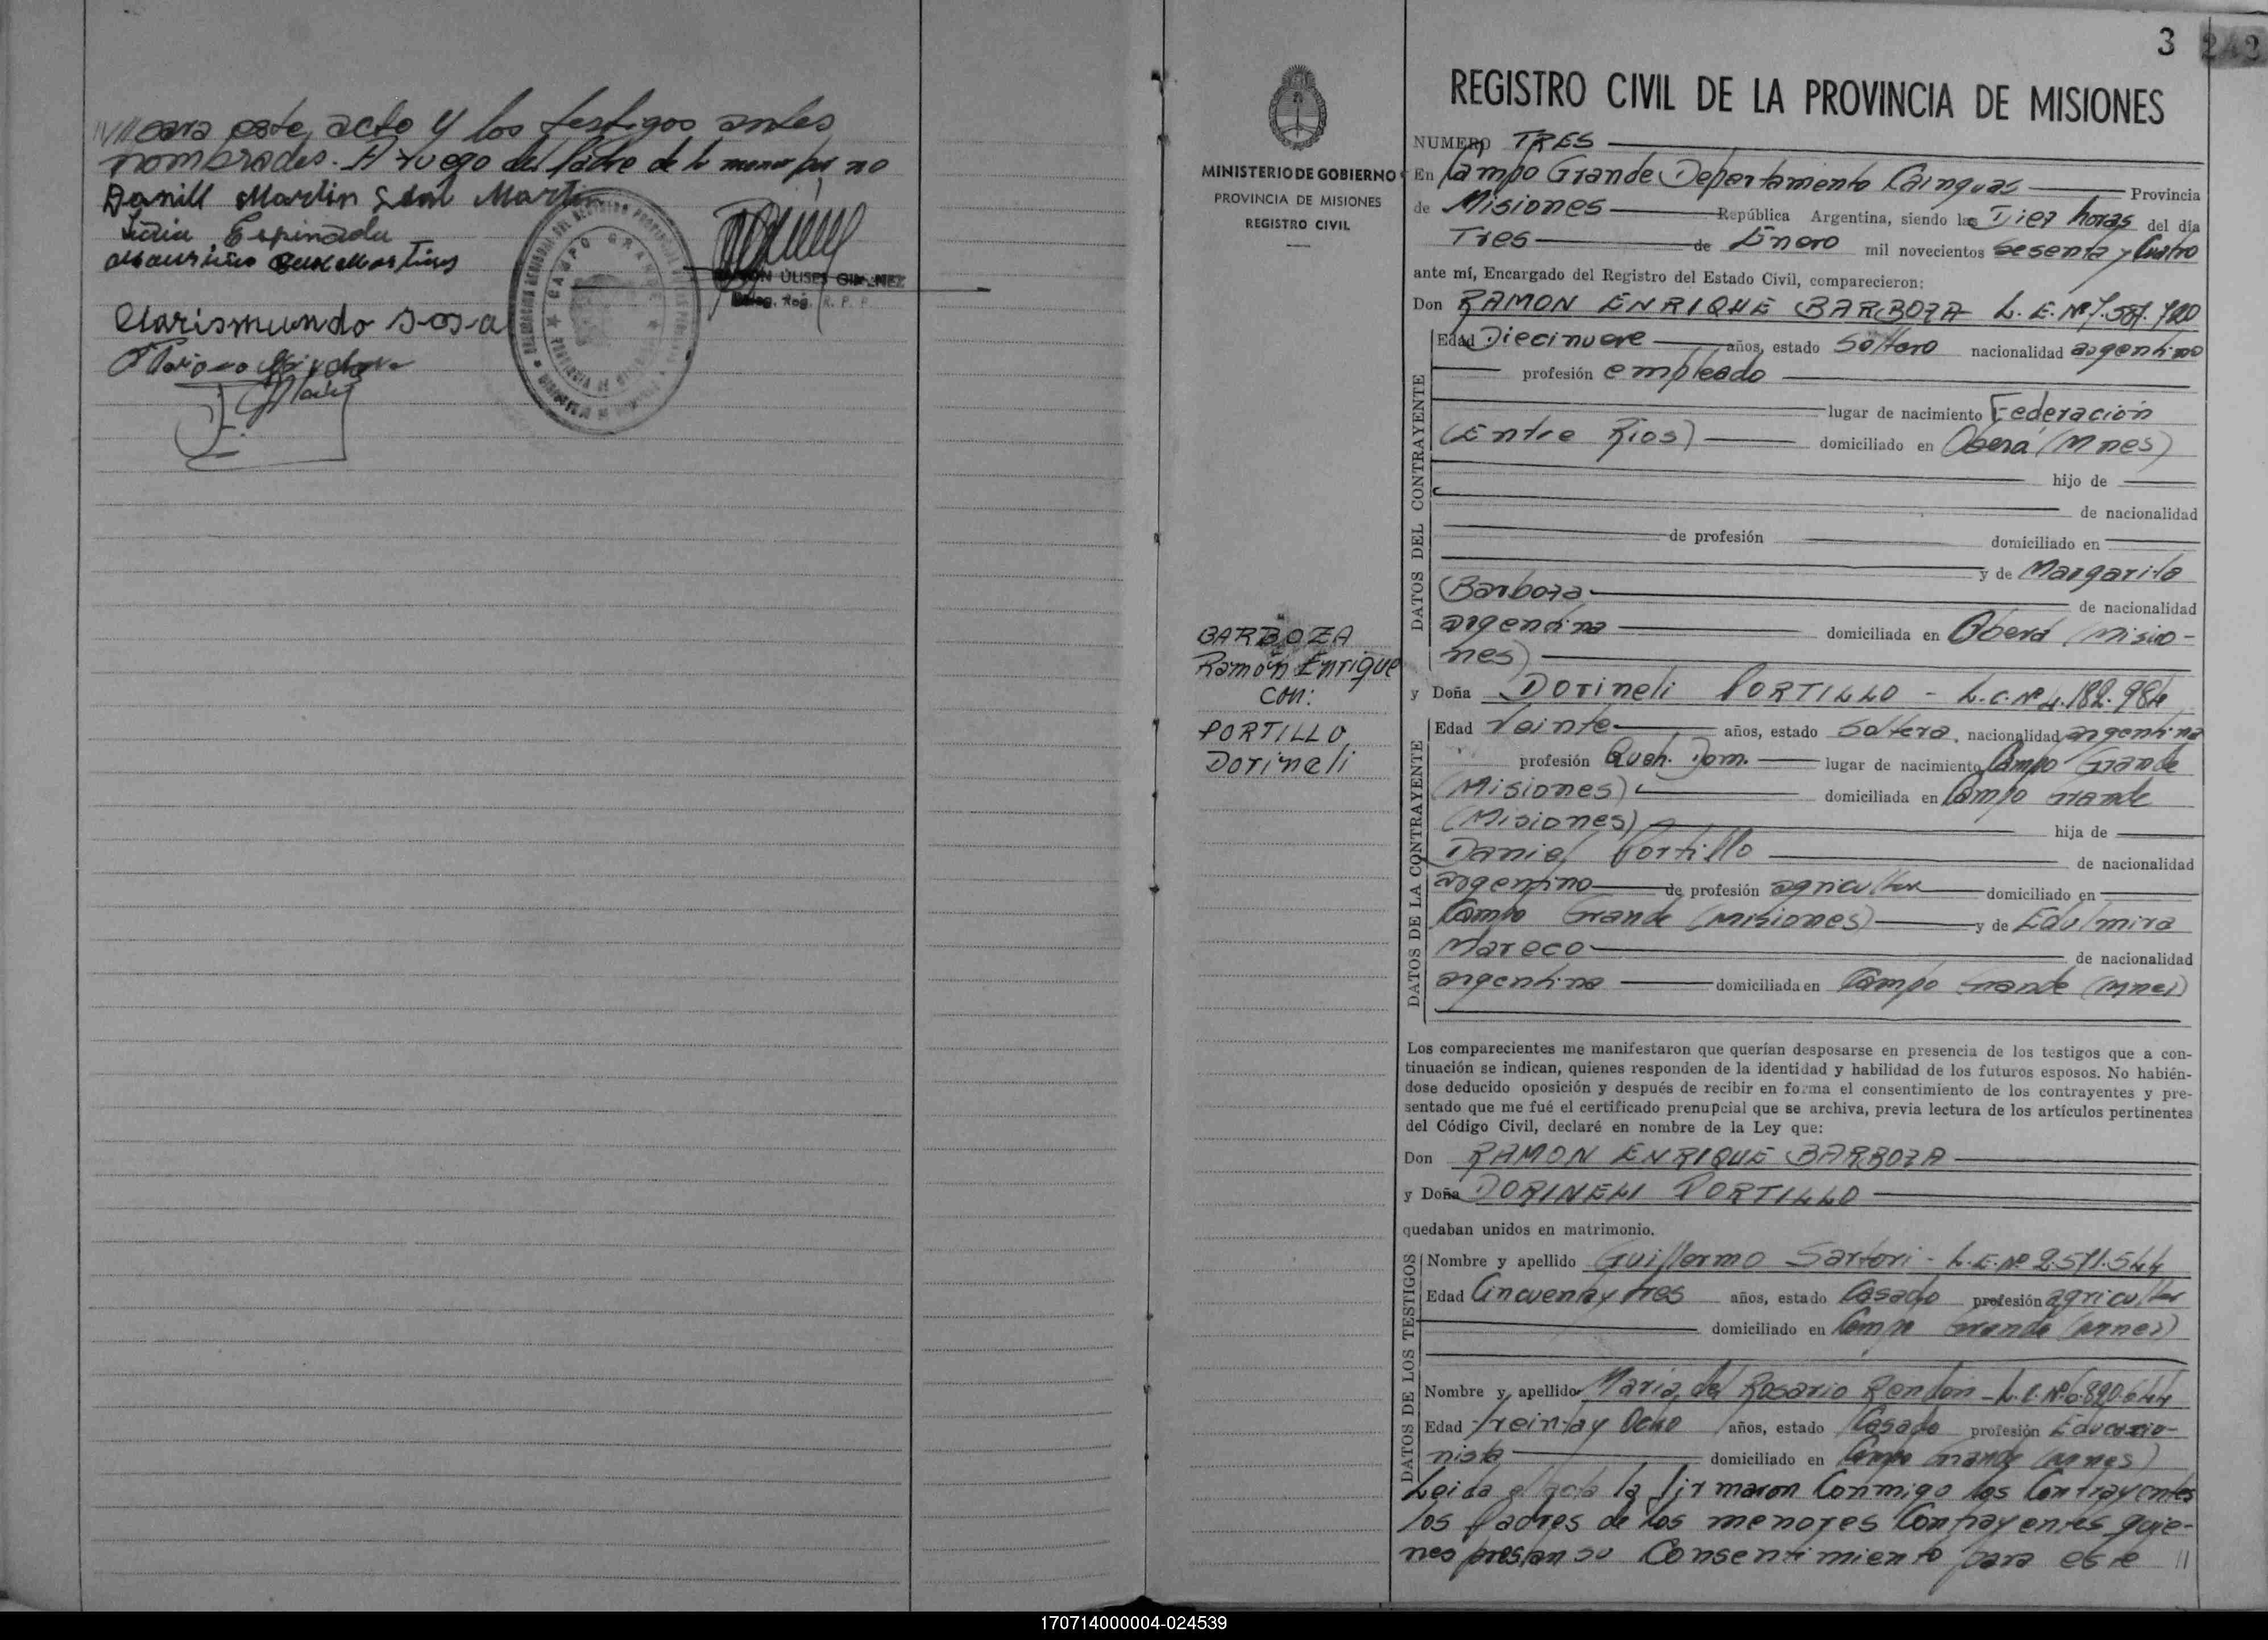 para este acto y los testigos antes
nombrados. A ruego del Padre de la menor por no
Danill Martin Martin
Espindola
Clarismundo Sosa
CAMPO GRANDE
ULISES GIMENEZ
Deleg. Reg. R. P. P.
3
242
MINISTERIO DE GOBIERNO
PROVINCIA DE MISIONES
REGISTRO CIVIL
BARBOZA
Ramón Enrique
con:
PORTILLO
Dorineli
REGISTRO CIVIL DE LA PROVINCIA DE MISIONES
NUMERO TRES
En Campo Grande Departamento Cainguas Provincia
de Misiones República Argentina, siendo las Diez horas del día
Tres de Enero mil novecientos sesenta y Cuatro
ante mí, Encargado del Registro del Estado Civil, comparecieron:
Don RAMON ENRIQUE BARBOZA L. E. Nº 7.587.720
DATOS DEL CONTRAYENTE
Edad Diecinueve años, estado Soltero nacionalidad argentino
profesión empleado
lugar de nacimiento Federación
(Entre Rios) domiciliado en Oberá (Mnes)
hijo de
de nacionalidad
de profesión domiciliado en
y de Margarita
Barboza
de nacionalidad
argentina domiciliada en Oberá (Misio-
nes)
y Doña Dorineli PORTILLO - L.C. Nº 4.182.984
DATOS DE LA CONTRAYENTE
Edad Veinte años, estado Soltera, nacionalidad argentina
profesión Queh. Dom. lugar de nacimiento Campo Grande
(Misiones) domiciliada en Campo Grande
(Misiones) hija de
Daniel Portillo
de nacionalidad
argentino de profesión agricultor domiciliado en
Campo Grande (Misiones) y de Edulmira
Mareco
de nacionalidad
argentina domiciliada en Campo Grande (Mnes)
Los comparecientes me manifestaron que querían desposarse en presencia de los testigos que a con-
tinuación se indican, quienes responden de la identidad y habilidad de los futuros esposos. No habién-
dose deducido oposición y después de recibir en forma el consentimiento de los contrayentes y pre-
sentado que me fué el certificado prenupcial que se archiva, previa lectura de los artículos pertinentes
del Código Civil, declaré en nombre de la Ley que:
Don RAMON ENRIQUE BARBOZA
y Doña DORINELI PORTILLO
quedaban unidos en matrimonio.
DATOS DE LOS TESTIGOS
Nombre y apellido Guillermo Sartori - L.E. Nº 2.571.544
Edad Cincuenta y tres años, estado Casado profesión agricultor
domiciliado en Campo Grande (Mnes)
Nombre y apellido Maria del Rosario Rendon - L.C. Nº 6.820.644
Edad treinta y Ocho años, estado Casado profesión Educacio-
nista domiciliado en Campo Grande (Mnes)
Leida el acta la firmaron Conmigo los Contrayentes
los Padres de los menores Contrayentes quie-
nes prestan su Consentimiento para este //
170714000004-024539